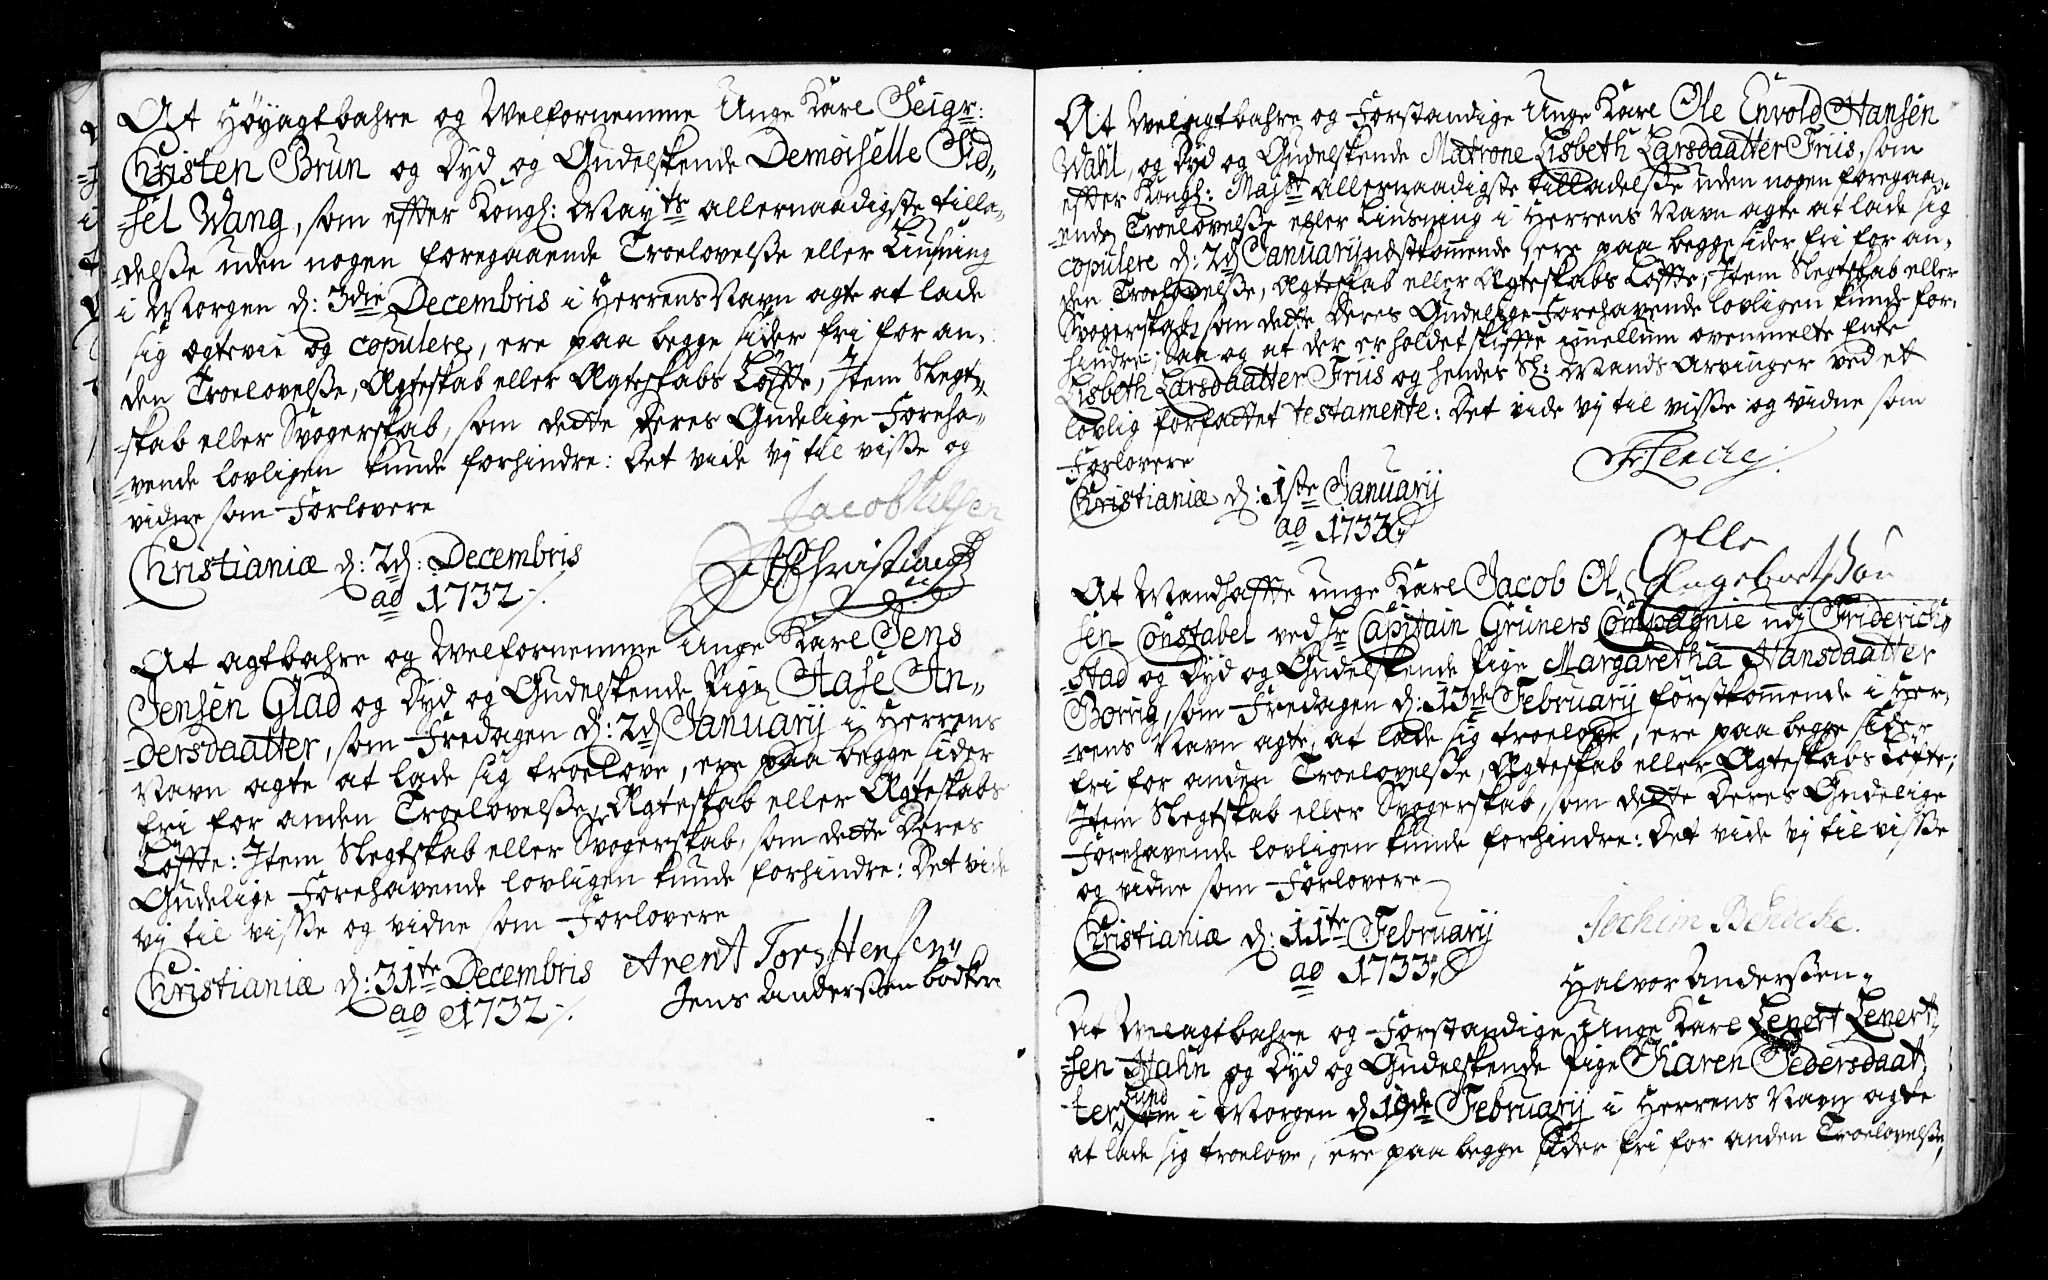 At Höyagtbahre og Welfornemme Unge Karl Seigr:
Christen Brun og Dyd og Gudelskende Demoiselle Sid-
-sel Wang, som efter Kongl: Mayts allernaadigste tilla-
-delsse uden nogen foregaaende Troelovelsse eller Liusning
i Morgen d: 3die Decembris i Herrens Navn agte at lade
sig ægtevie og copulere, ere paa begge sider fri for an-
den Troelovelsse, Ægteskab eller Ægteskabs Løffte, Item Slegt-
-skab eller Svogerskab, som dette Deres Gudelige Foreha-
-vende lovligen kunde forhindre: Det vide vj til visse og
vidne som Forlovere
Jacob
Christianiæ d: 2d: Decembris
ao 1732 ⁒
At agtbahre og Welfornemme Unge Karl Jens
Jensen Glad og Dyd og Gudelskende Pige Aase An-
-dersdaatter, som Fredagen d: 2d Januarij i Herrens
Navn agte at lade sig troelove, ere paa begge sider
fri for anden Troelovelsse, Ægteskab eller Ægteskabs
Løffte: Item Slegtskab eller Svogerskab, som dette Deres
Gudelige Forehavende lovligen kunde forhindre: Det vide
vj til visse og vidne som Forlovere
Christianiæ d: 31te Decembris
ao 1732 ⁒
Arent Torsttensen
Jens Anderssen bödker
At Welagtbahre og Forstandige Unge Karl Ole Envold Hansen
Wahl, og Dyd og Gudelskende Matrone Lisbeth Larsdaatter Friis, som
efter Kongl: Mayst allernaadigste tilladelsse uden nogen foregaa-
-ende Troelovelsse eller Liusning i Herrens Navn agte at lade sig
copulere d: 2d Januarij nestkommende, ere paa begge sider fri for an-
den Troelovelsse, Ægteskab eller Ægteskabs Løffte, Item Slegtskab eller
Svogerskab, som dette Deres Gudelige Forehavende lovligen kunde for-
hindre; Saa og at der er holdet skiffte imellum ovenmelte Enke
Lisbeth Larsdaatter Friis og hendes Sl: Mands Arvinger ved et
lovlig forfattet testamente: Det vide vj til visse og vidne som
Forlovere
Christianiæ d: 1ste Januarij
ao 1733
Olle
Engebretsøn
At Mandhaffte unge Karl Jacob Ol-
sen Constabel ved Hr Capitain Grüners Compagnie udj Friderich-
-stad og Dyd og Gudelskende Pige Margaretha Hansdaatter
Borrig, som Fredagen d: 13de Februarij förstkommende i Her-
-rens Navn agte, at lade sig troelove, ere paa begge sider
fri for anden Troelovelsse, Ægteskab eller Ægteskabs Löfte;
Item Slegtskab eller Svogerskab, som dette Deres Gudelige
Forehavende lovligen kunde forhindre: Det vide vj til visse
og vidne som Forlovere
Christianiæ d: 11te Februarij
ao 1733
Jochim Bendeke.
Halvor Anderssen
At Welagtbahre og Forstandige Unge Karl Lenert Lenert-
-sen Hahn og Dyd og Gudelskende Pige Karen Pedersdaat-
-ter Lund som i Morgen d 19de Februarij i Herrens Navn agte
at lade sig troelove, ere paa begge sider fri for anden Troelovelsse,